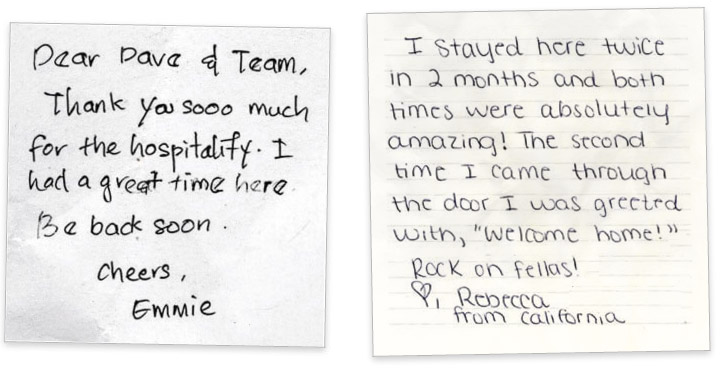 Dear Dave & Team,
Thank you sooo much
for the hospitality. I
had a great time here
Be back soon.
Cheers,
Emmie
I stayed here twice
in 2 months and both
times were absolutely
amazing! The second
time I came through
the door I was greeted
with, "Welcome home!"
Rock on fellas!
♡, Rebecca
from California